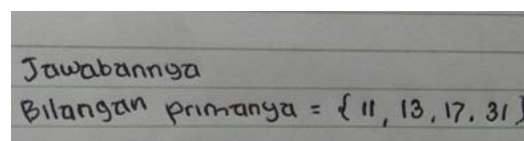 Jawabannya
Bilangan primanya = { 11, 13, 17. 31 }